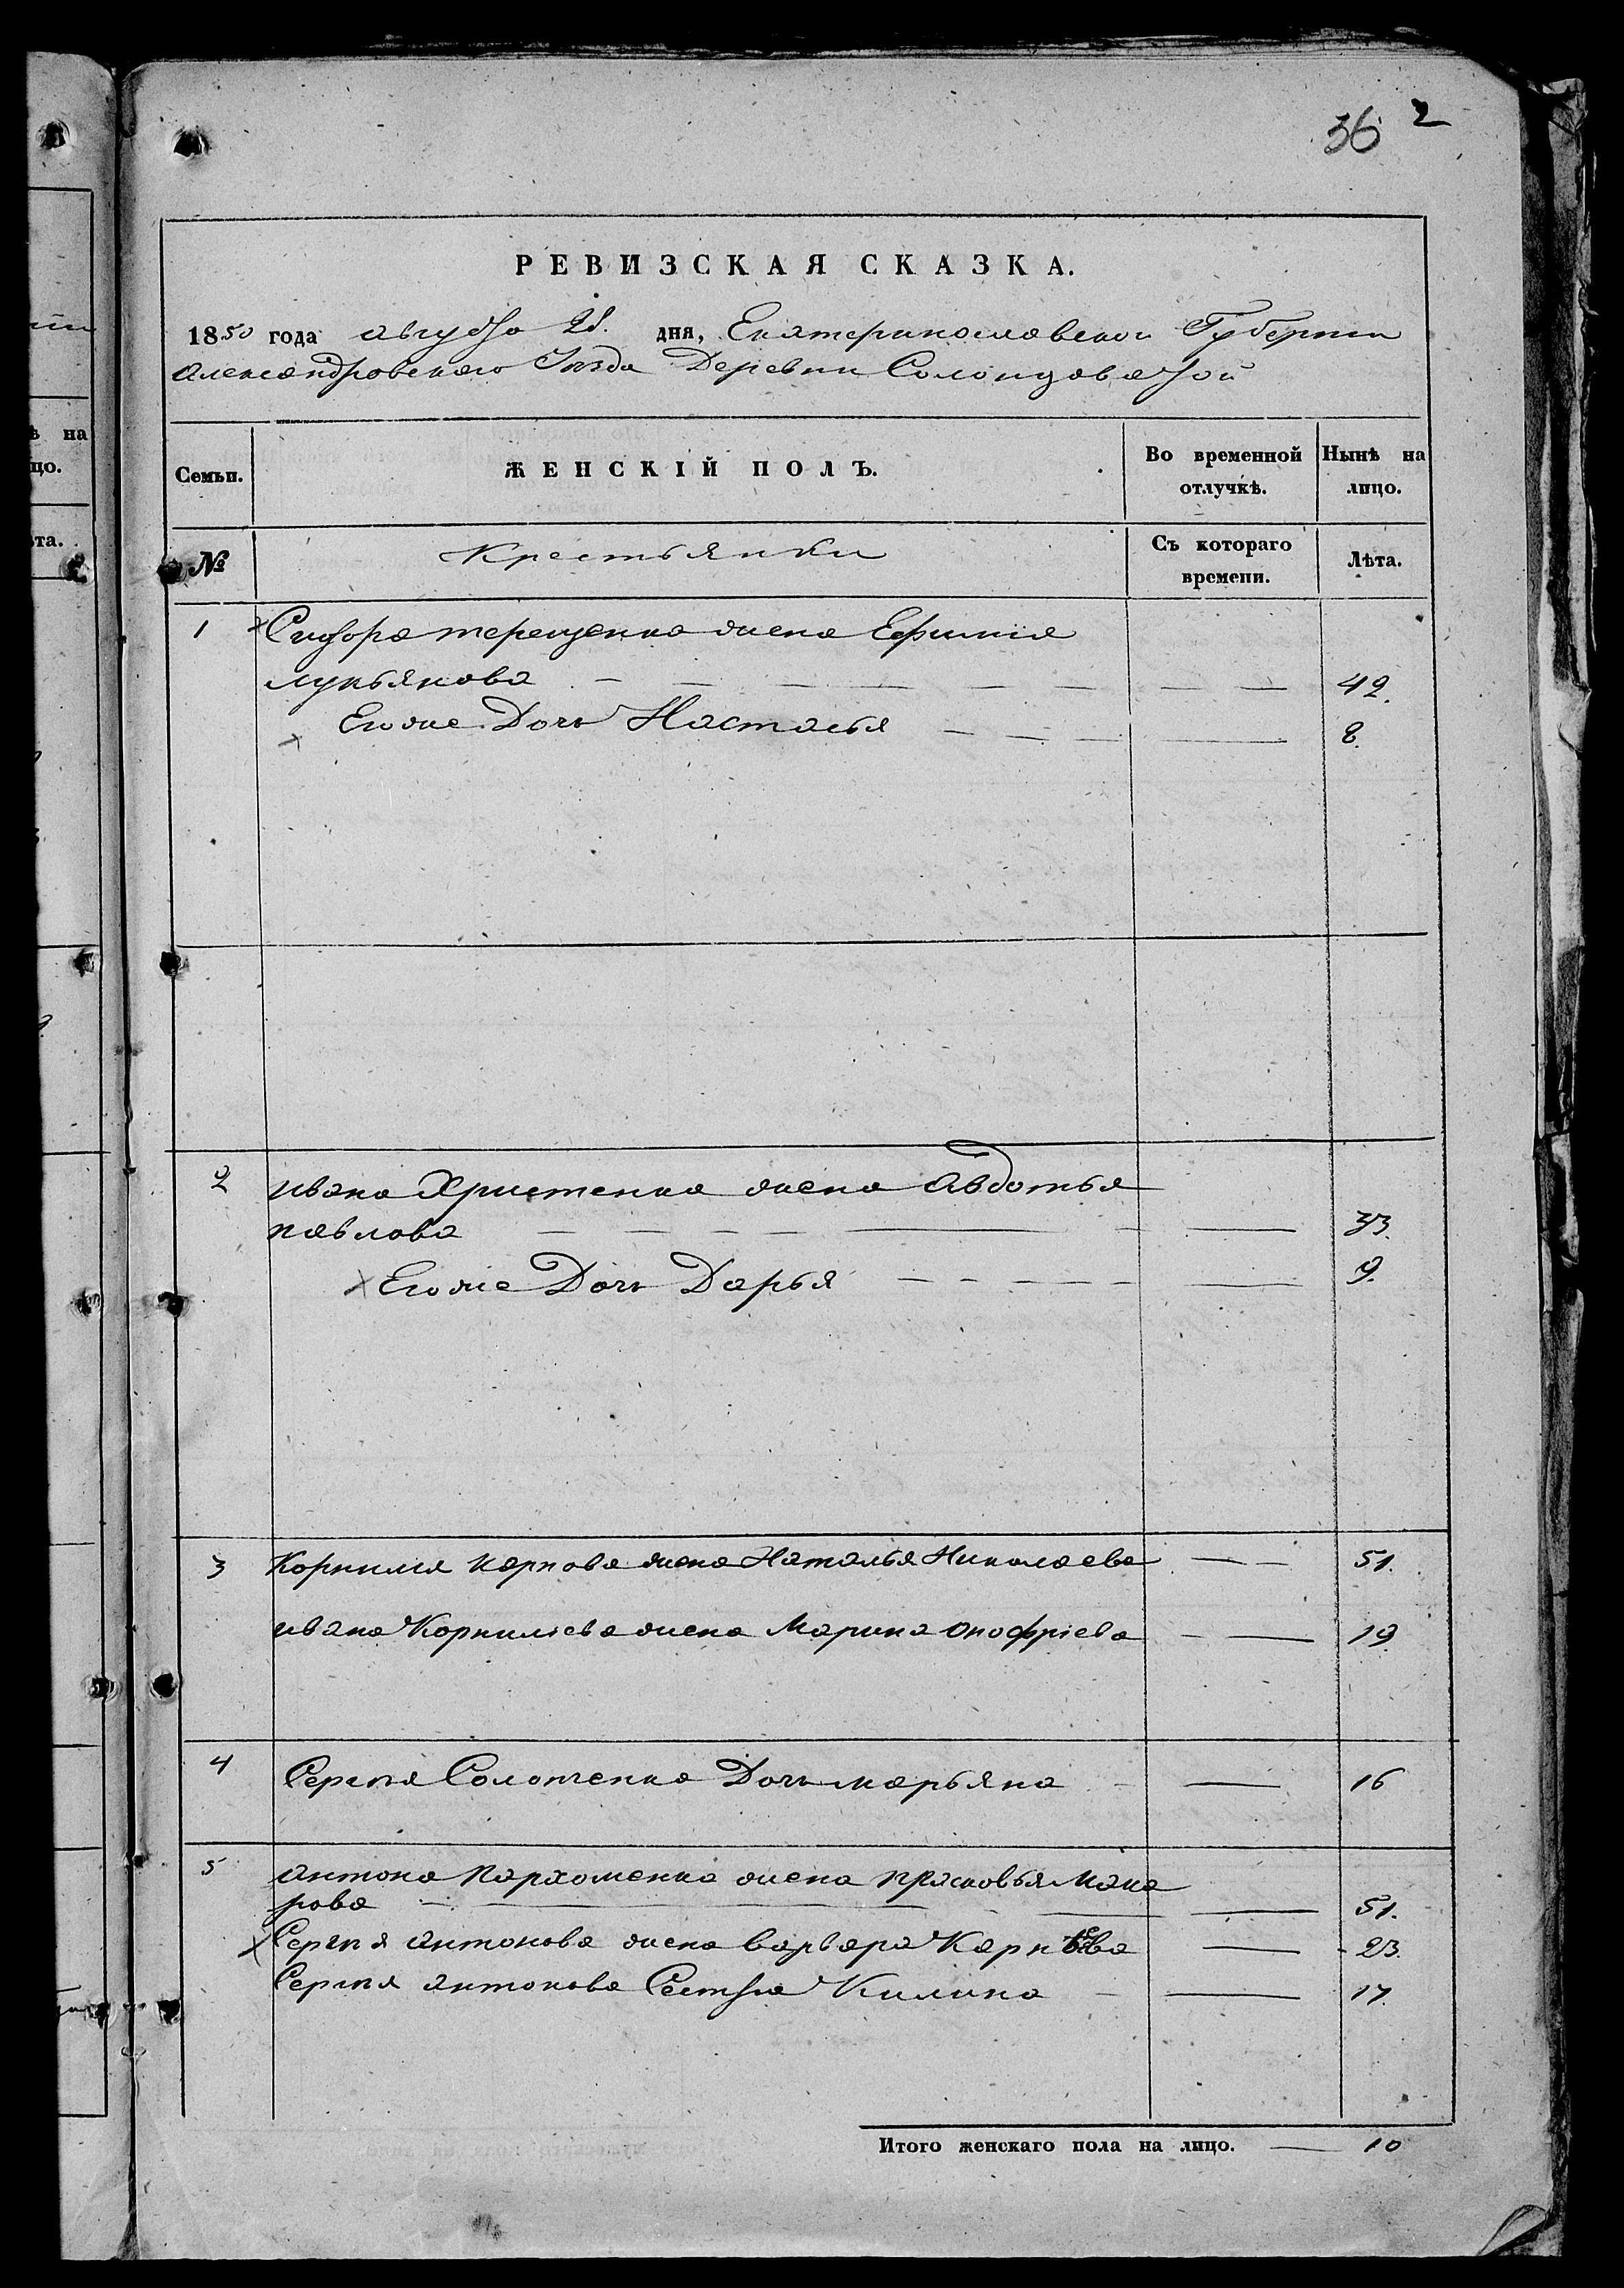 36 2
РЕВИЗСКАЯ СКАЗКА.
1850 года августа 21. дня, Екатеринославской Губернии
Александровскаго Уѣзда Деревни Солонцоватой
Семьи. ЖЕНСКІЙ ПОЛЪ. Во временной отлучкѣ. Нынѣ на лицо.
№ Крестьянки Съ котораго времени. Лѣта.
1 Сидора терещенка жена Ефимія
лукьянова 42.
Егоже Дочь Настасья 8.
2 ивана Христенка жена Авдотья
павлова 33.
Егоже Дочь Дарья 9.
3 Корнилія карпова жена Наталья Николаева 51.
ивана Корниліева жена Марина Онофріева 19.
4 Сергѣя Солотченка Дочь марьяна 16
5 Антона Пархоменка жена прасковья Мака
рова 51.
Сергѣя антонова жена варвара 23.
Сергѣя антонова Сестра Килина 17.
Итого женскаго пола на лицо. 10
ѣ на
цо.
ѣта.